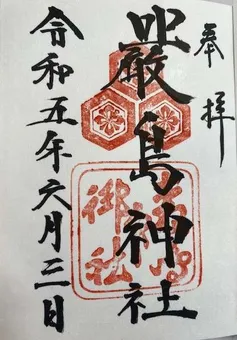 奉拝
嚴島神社
令和五年六月三日